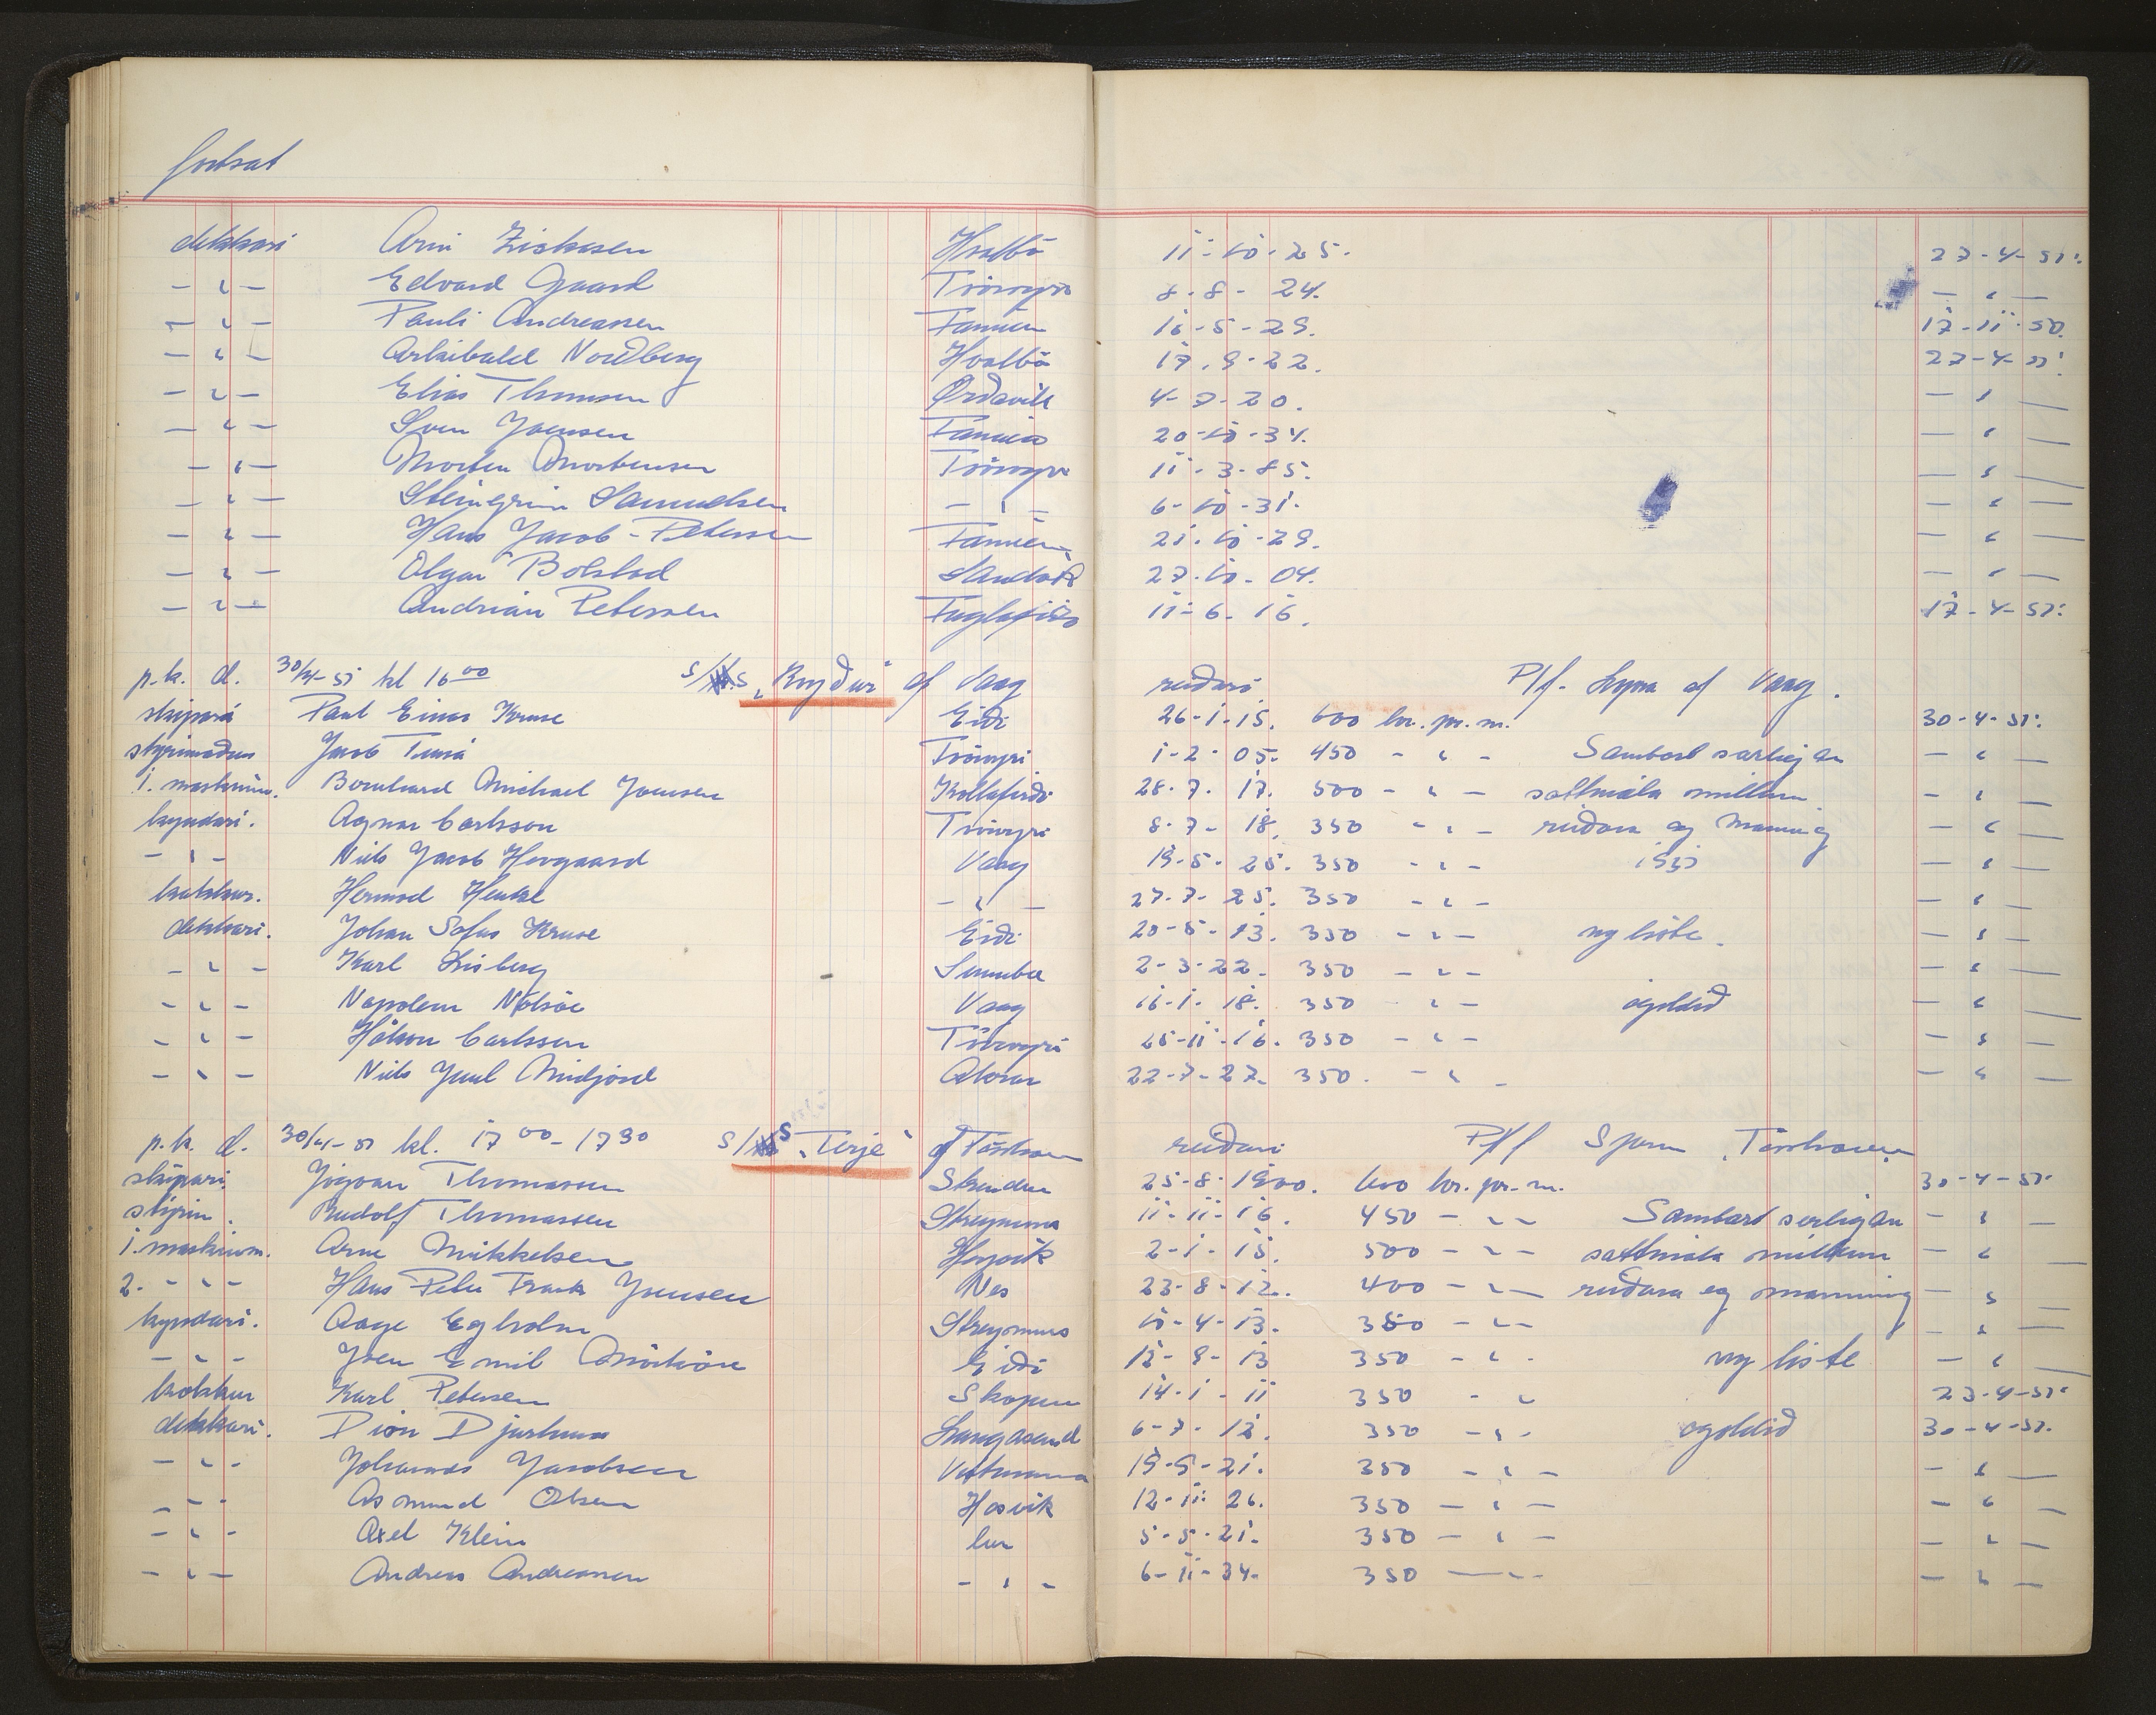 fortsat
dekkari Arni Ziskasen Hvalbø 11-10-25. 27-4-51.
- " - Edvard Gaard Tvöroyri 8-8-24. - " -
- " - Pauli Andreasen Famien 16-5-29. 17-11-50.
- " - Arkibald Nordberg Hvalbö 17.9-22. 27-4-51.
- " - Elias Thomsen Ørdavik 4-7-20. - " -
- " - Sven Joensen Famien 20-10-34. - " -
- " - Morten Mortensen Tvöroyri 11-3-85. - " -
- " - Steingrim Samuelsen - " - 6-10-31. - " -
- " - Hans Jacob-Petersen Famien 21-10-29. - " -
- " - Olgar Bolstad Sandvík 27-10-04. - " -
- " - Andrian Petersen Fuglafjörð 11-6-16. 17-4-51.
p.k. d. 30/4-51 kl 16 00 s/s "Royður" af Vaag reiðari P/f. Lopra af Vaag.
skipari Paul Einar Kruse Eiði 26-1-15. 600 kr. pr. m. 30-4-51.
stýrimaður Jacob Tummá Tvöroyri 1-2-05. 450 - " - Sambart særligan - " -
1. maskinm. Bernhard Michael Joensen Kollafirði 28-7-17. 500 - " - sáttmála millum - " -
kyndari. Agnar Carlsson Tvöroyri 8-7-18. 350 - " - reiðara og manning - " -
- " - Niels Jacob Hovgaard Vaag 19-5-25. 350 - " - 1951 - " -
kokkur. Hermod Henkel - " - 27-7-25. 350 - " - - " -
dekkari. Johan Sofus Kruse Eiði 20-5-13. 350 - " - ny liste. - " -
- " - Karl Lisberg Sumba 2-3-22. 350 - " - - " -
- " - Napoleon Nolsöe Vaag 16-1-18. 350 - " - ógoldið - " -
- " - Håkon Carlssen Tvöroyri 25-11-16. 350 - " - - " -
- " - Niels Juul Midjord Akrar 22-7-27. 350. - " - - " -
p.k. d. 30/4-51 kl. 17 00-17 30 s/s "Terje" af Tórshavn reiðari P/f Sjóm Tórshavn
skipari. Jógvan Thomasen Skindur 25-8-1900. 600 kr. pr. m. 30-4-51.
stýrim. Rudolf Thomassen Streymnes 11-11-16. 450 - " - Sambart serligan - " -
1. maskinm. Arne Mikkelsen Hoyvík 2-1-15. 500 - " - sáttmála millum - " -
2. - " - Hans Peter Frank Joensen Nes 23-8-12. 400 - " - reiðara og manning - " -
kyndari. Aage Egholm Streymnes 10-4-13. 350 - " - - " -
- " - Joen Emil Mörköre Eiði 12-9-13 350 - " - ny liste - " -
kokkur Karl Petersen Skopun 14-1-11 350 - " 23-4-51.
dekkari. Dion Djurhuus Langasand 6-7-12. 350 - " - ógoldið 30-4-51.
- " - Johannes Jacobsen Vestmanna 19-9-21. 350 - " - - " -
- " - Asmund Olsen Hósvík 12-11-26. 350 - " - - " -
- " - Axel Klein 5-5-21. 350 - " - - " -
- " - Andreas Andreassen - " - 6-11-34. 350 - " - - " -